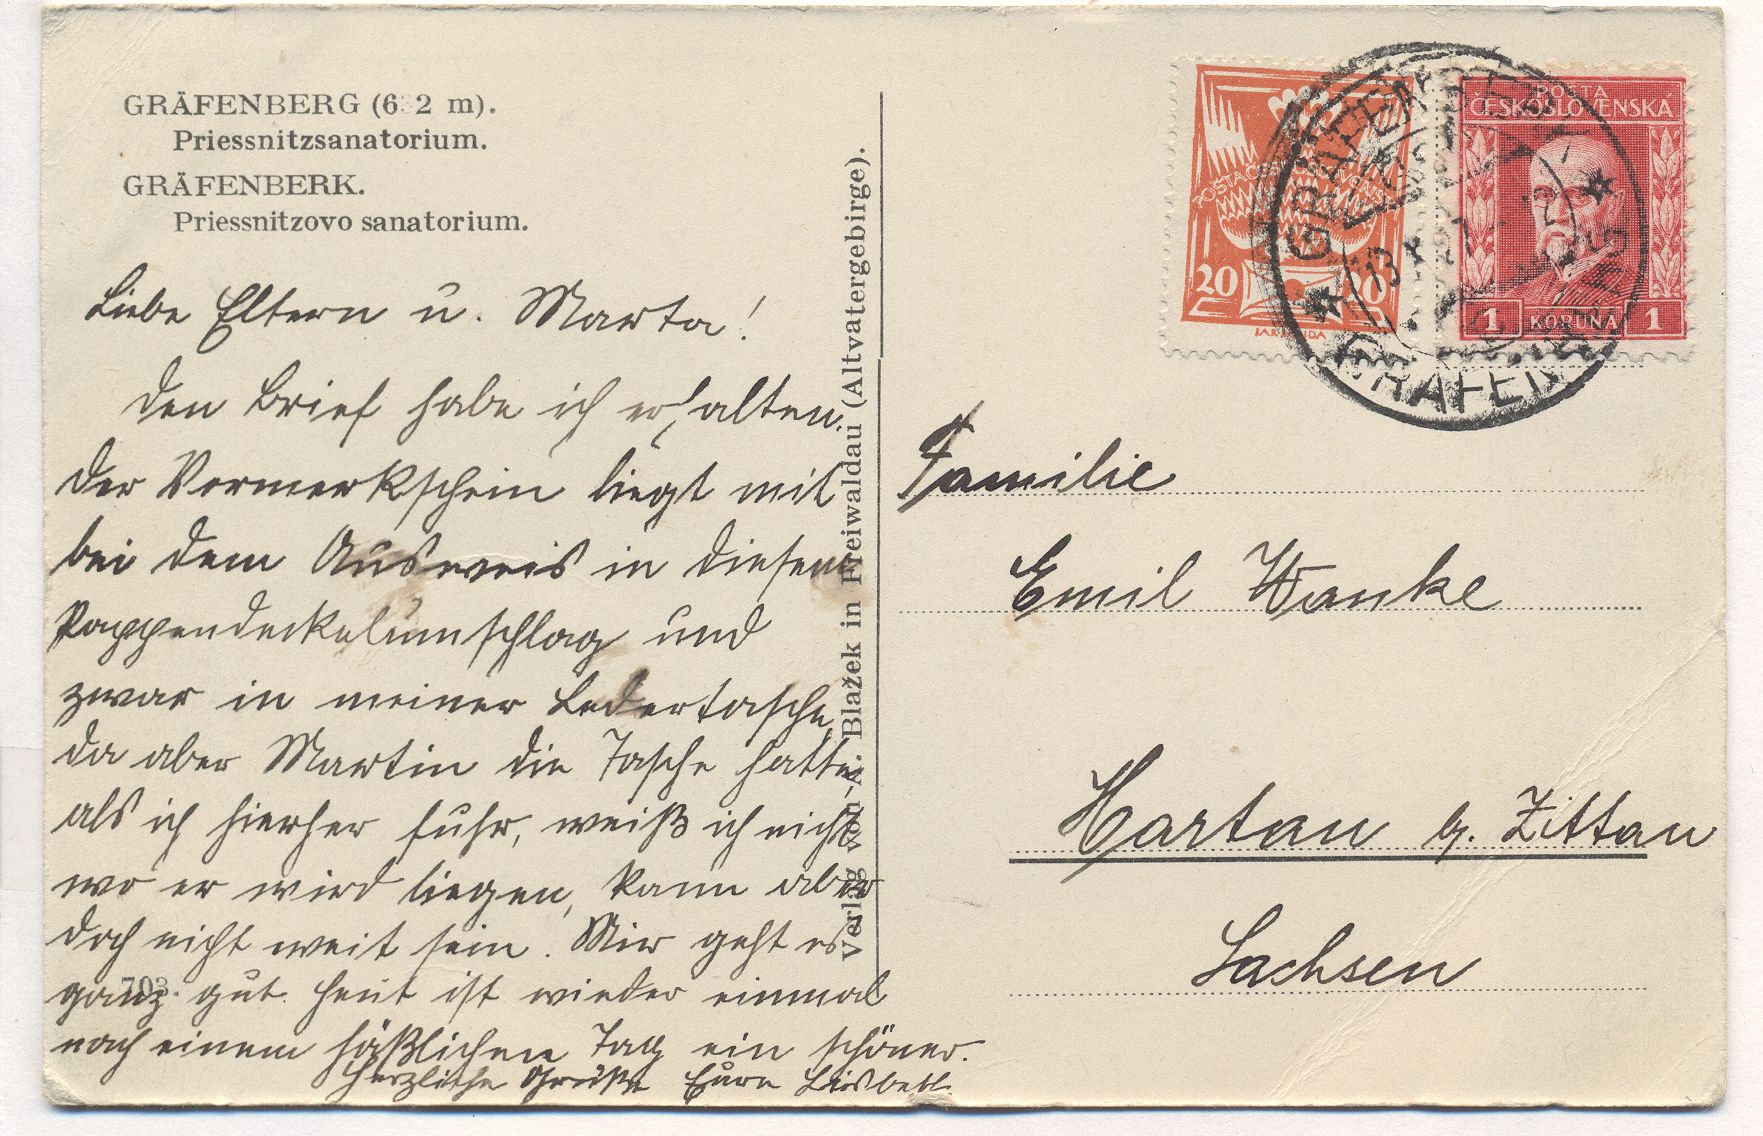 GRÄFENBERG (632 m).
Priessnitzsanatorium.
GRÄFENBERK.
Priessnitzovo sanatorium.
Liebe Eltern u. Marta!
Den Brief habe ich erhalten.
Der Vormerkschein liegt mit
bei dem Ausweis in diesem
Pappendeckelumschlag und
zwar in meiner Ledertasche,
da aber Martin die Tasche hatte
als ich hierher fuhr, weiß ich nicht
wo er wird liegen, kann aber
doch nicht weit sein. Mir geht es
ganz gut. Heut ist wieder einmal
nach einem häßlichen Tag ein schöner.
Herzliche Grüße Eure Lisbeth.
703.
Verlag von A. Blažek in Freiwaldau (Altvatergebirge).
POŠTA ČESKOSLOVENSKÁ
20 20
POŠTA
ČESKOSLOVENSKÁ
1 KORUNA 1
GRÄFENBERG
13 X 27 - 12
GRÄFENBERK
Familie
Emil Wanke
Hartau b. Zittau
Sachsen